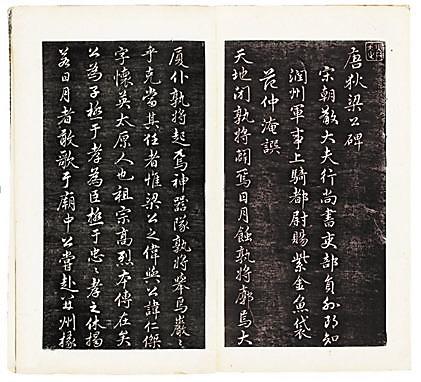 唐狄梁公碑
宋朝散大夫行尚書吏部員外郎知
潤州軍事上騎都尉賜紫金魚袋
范仲淹譔
天地閉孰將闢焉日月蝕孰將廓焉大
厦仆孰將起焉神器隊孰將舉焉巖〻
乎克當其任者惟梁公之偉歟公諱仁傑
字懷英太原人也祖宗高烈本傳在矣
公為子極于孝為臣極于忠〻孝之休揭
若日月者敢歌于廟中公嘗赴并州掾